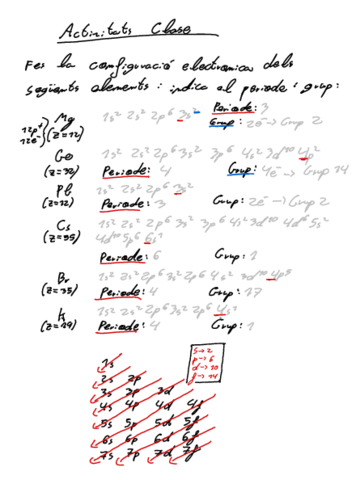 Activitats Classe
Fes la configuració electronica dels
següents elements i indica el periode i grup:
Mg 1s² 2s² 2p⁶ 3s² Periode: 3
12p⁺ 12e⁻ (z=12) Grup: 2e⁻→Grup 2
Ge 1s² 2s² 2p⁶ 3s² 3p⁶ 4s² 3d¹⁰ 4p²
(z=32) Periode: 4 Grup: 4e⁻→Grup 14
Pb 1s² 2s² 2p⁶ 3s²
(z=12) Periode: 3 Grup: 2e⁻→Grup 2
Cs 1s² 2s² 2p⁶ 3s² 3p⁶ 4s² 3d¹⁰ 4d⁶ 5s²
(z=55) 4d¹⁰ 5p⁶ 6s¹
Periode: 6 Grup: 1
Br 1s² 2s² 2p⁶ 3s² 2p⁶ 4s² 3d¹⁰ 4p⁵
(z=35) Periode: 4 Grup: 17
K 1s² 2s² 2p⁶ 3s² 2p⁶ 4s¹
(z=19) Periode: 4 Grup: 1
1s
2s 2p
3s 3p 3d
4s 4p 4d 4f
5s 5p 5d 5f
6s 6p 6d 6f
7s 7p 7d 7f
s→2
p→6
d→10
f→14